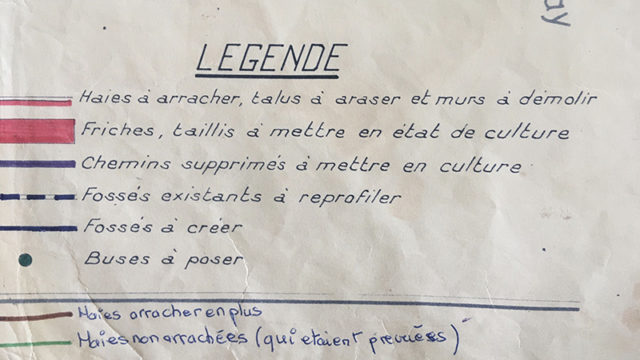 ay
LEGENDE
Haies à arracher, talus à araser et murs à démolir
Friches, taillis à mettre en état de culture
Chemins supprimés à mettre en culture
Fossés existants à reprofiler
Fossés à créer
Buses à poser
Haies arracher en plus
Haies non arrachées (qui etaient prevuées)